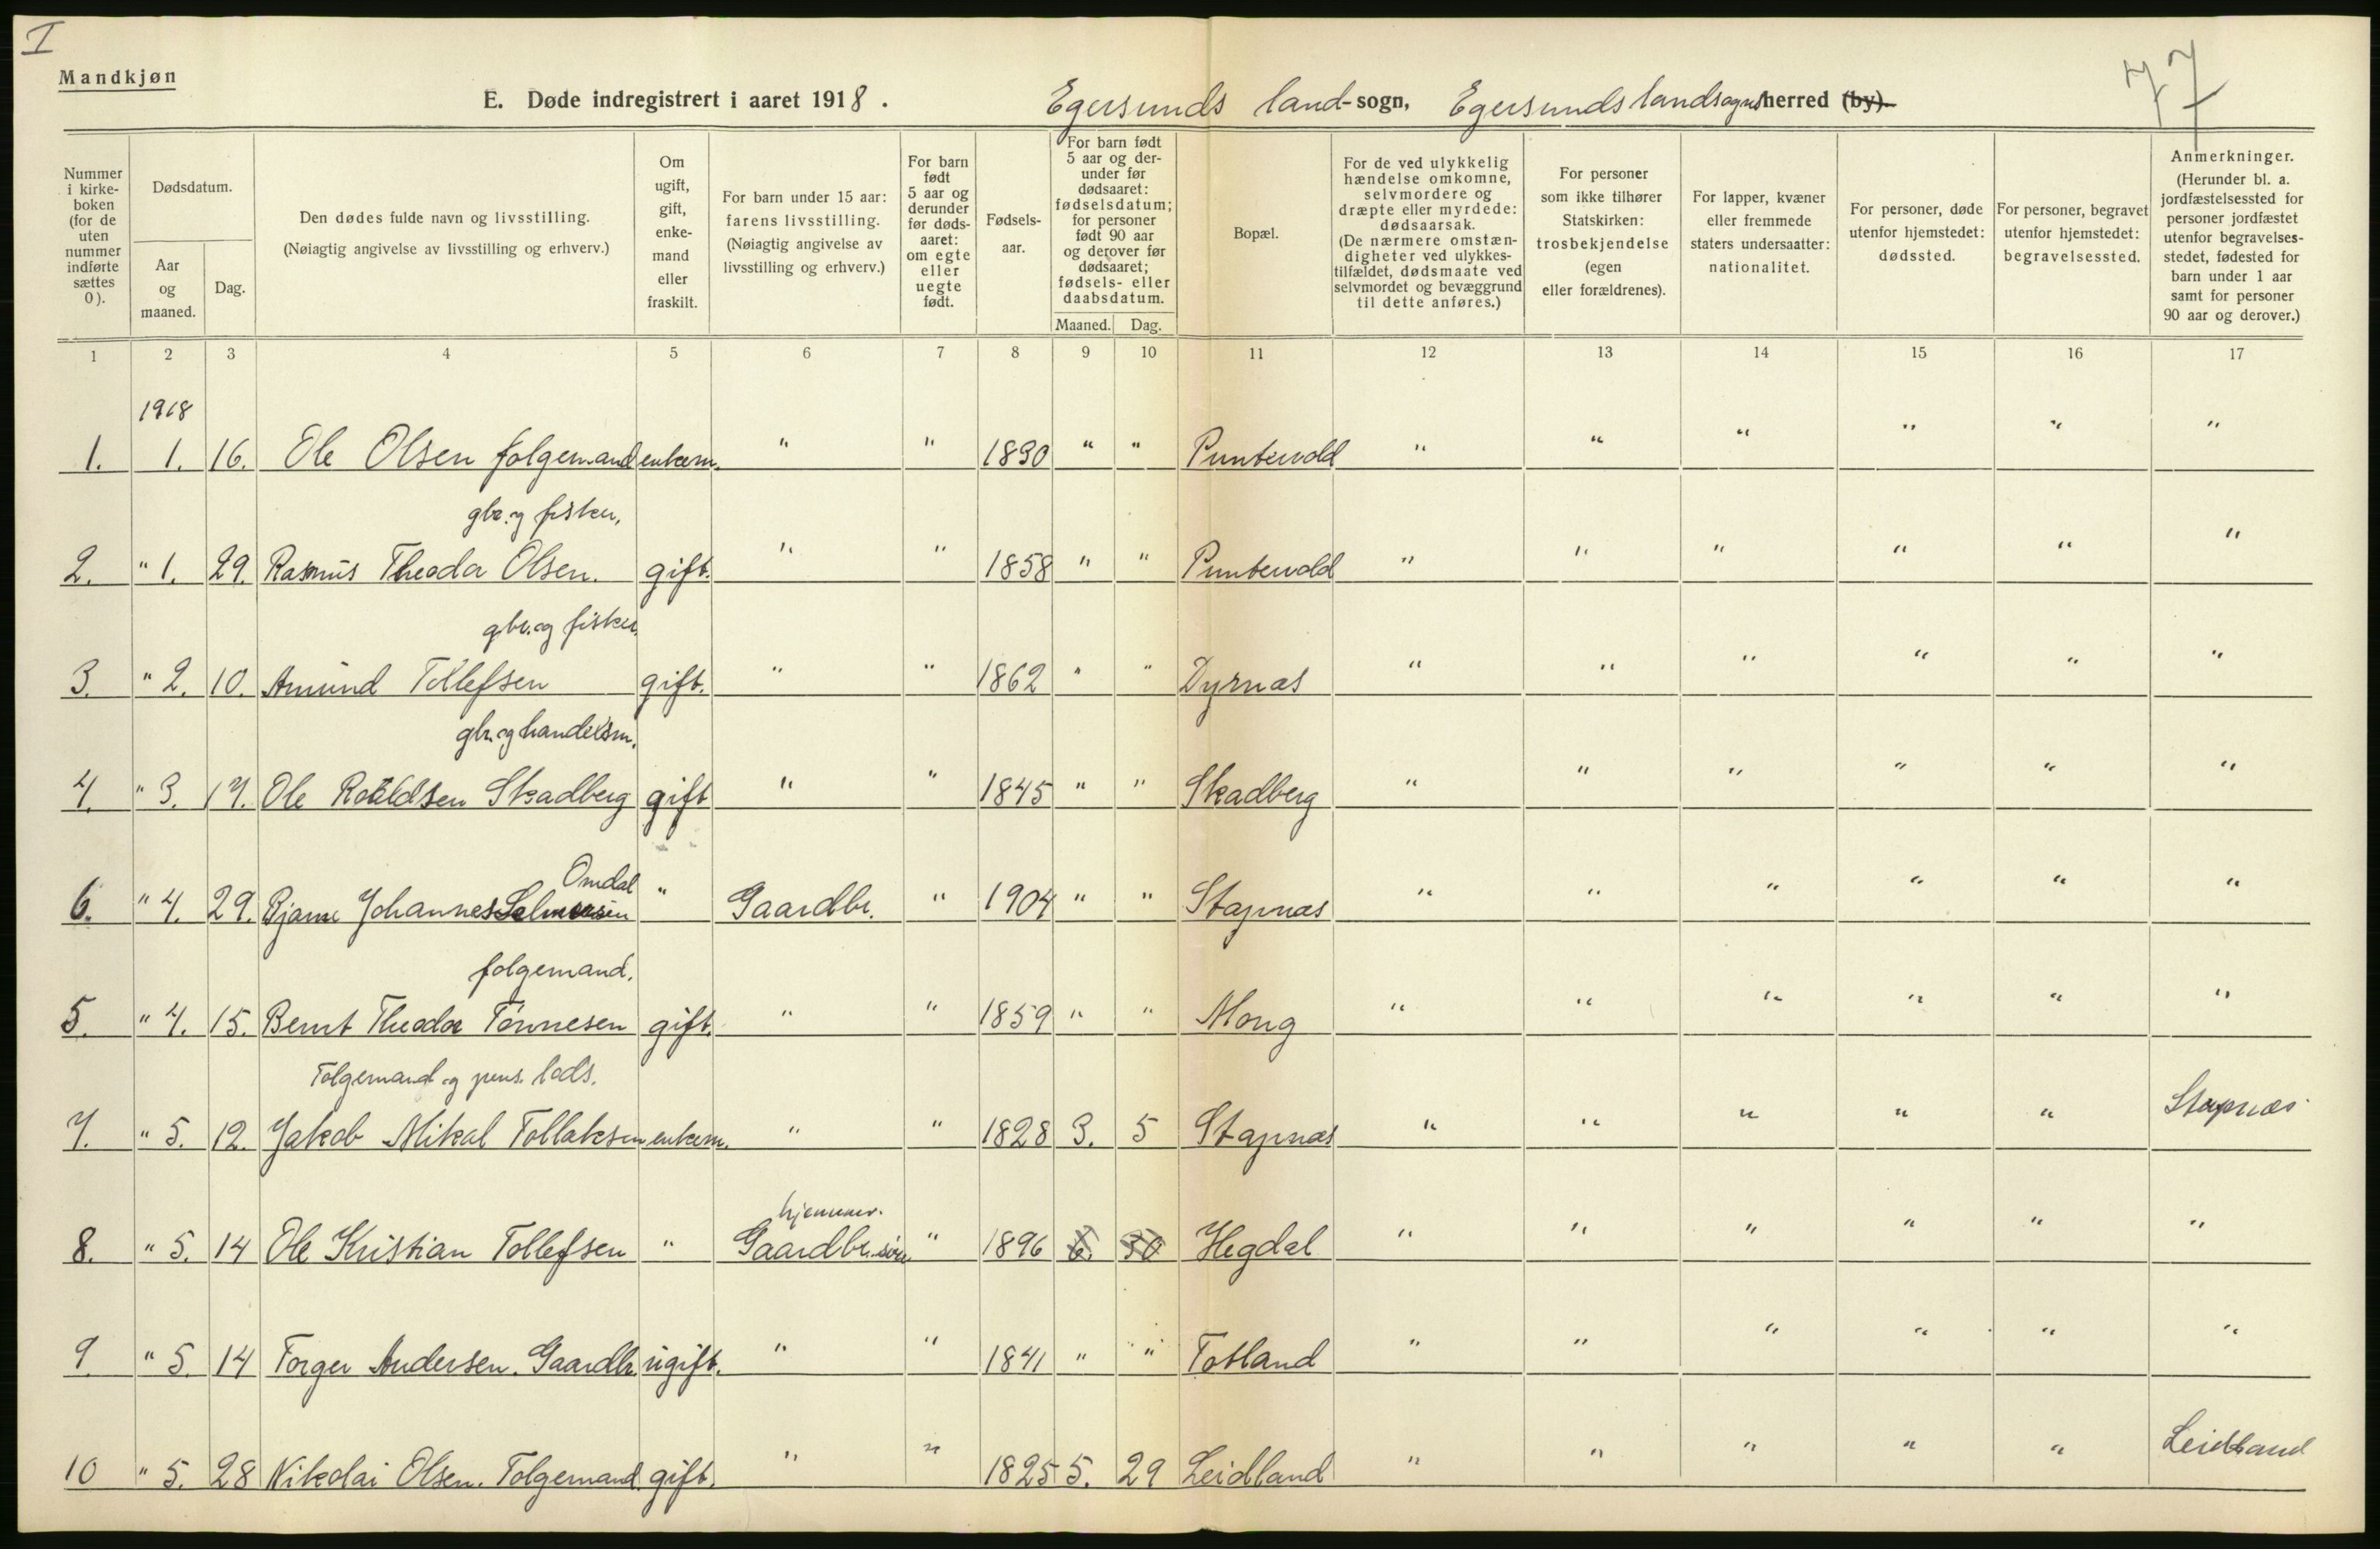 I
Mandkjøn
77
E. Døde indregistrert i aaret 1918. Egersunds land-sogn, Egersunds landsogns herred (by).
Nummer i kirke-boken (for de uten nummer indførte sættes 0).
Dødsdatum.
Aar og maaned.
Dag.
Den dødes fulde navn og livsstilling. (Nøiagtig angivelse av livsstilling og erhverv.)
Om ugift, gift, enke-mand eller fraskilt.
For barn under 15 aar: farens livsstilling. (Nøiagtig angivelse av livsstilling og erhverv.)
For barn født 5 aar og derunder før døds-aaret: om egte eller uegte født.
Fødsels-aar.
For barn født 5 aar og der-under før dødsaaret: fødselsdatum; for personer født 90 aar og derover før dødsaaret; fødsels- eller daabsdatum.
Maaned. Dag.
Bopæl.
For de ved ulykkelig hændelse omkomne, selvmordere og dræpte eller myrdede: dødsaarsak. (De nærmere omstæn-digheter ved ulykkes-tilfældet, dødsmaate ved selvmordet og bevæggrund til dette anføres.)
For personer som ikke tilhører Statskirken: trosbekjendelse (egen eller forældrenes).
For lapper, kvæner eller fremmede staters undersaatter: nationalitet.
For personer, døde utenfor hjemstedet: dødssted.
For personer, begravet utenfor hjemstedet: begravelsessted.
Anmerkninger. (Herunder bl. a. jordfæstelsessted for personer jordfæstet utenfor begravelses-stedet, fødested for barn under 1 aar samt for personer 90 aar og derover.)
1 2 3 4 5 6 7 8 9 10 11 12 13 14 15 16 17
1918
1. 1. 16. Ole Olsen folgemand enkem. " " 1830 " " Puntervold " " " " " "
gbr. og fisker.
2. " 1. 29. Rasmus Theodor Olsen. gift. " " 1858 " " Puntervold " " " " " "
gbr. og fisker.
3. " 2. 10. Amund Tollefsen gift. " " 1862 " " Dyrnæs " " " " " "
gbr. og handelsm.
4. " 3. 17. Ole Roaldsen Skadberg gift " " 1845 " " Skadberg " " " " " "
Omdal
6. " 4. 29. Bjarne Johannes " Gaardbr. " 1904 " " Stapnæs " " " " " "
folgemand.
5. " 4. 15. Bernt Theodor Tønnesen gift. " " 1859 " " Mong " " " " " "
Folgemand og pens. lods.
7. " 5. 12. Jakob Mikal Tollaksen enkem. " " 1828 3. 5 Stapnæs " " " " " Stapnæs
hjemmev.
8. " 5. 14 Ole Kristian Tollefsen " Gaardbr. søn " 1896 6. 30 Hegdal " " " " " "
9. " 5. 14 Torger Andersen. Gaardbr. ugift. " " 1841 " " Totland " " " " " "
10 " 5. 28 Nikolai Olsen. Folgemand. gift. " " 1825 5. 29 Leidland " " " " " Leidland